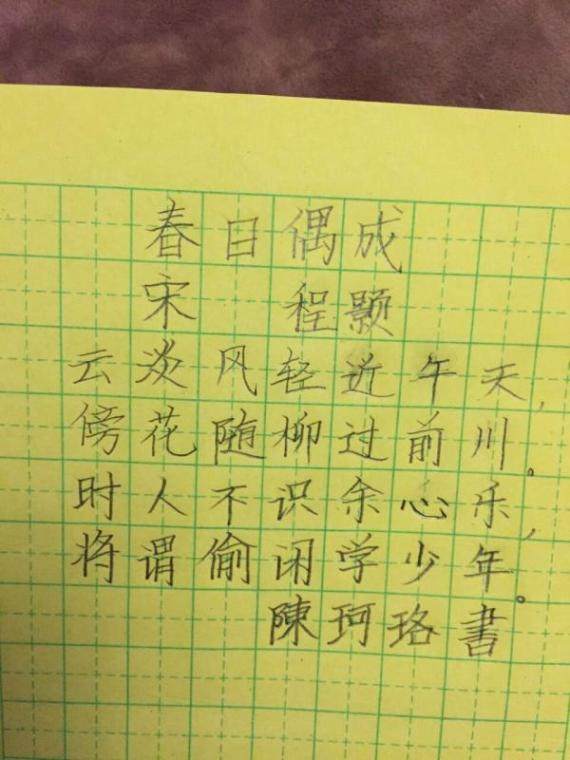 春日偶成
宋 程颢
云淡风轻近午天，
傍花随柳过前川。
时人不识余心乐，
将谓偷闲学少年。
陳珂珞書